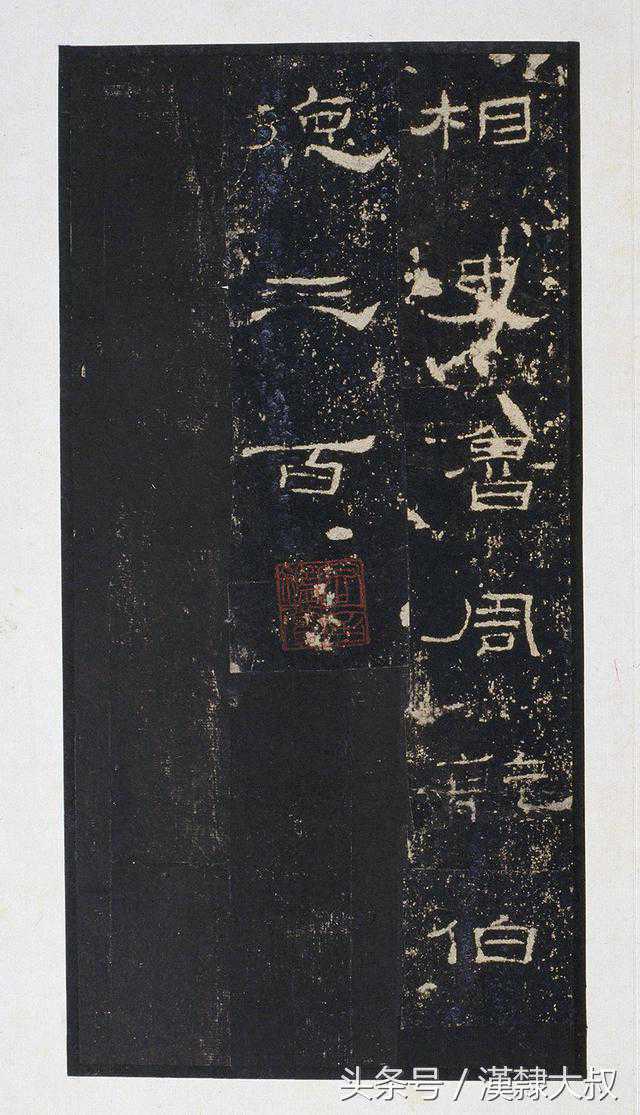 相史魯周乾伯
德三百
头条号 / 漢隸大叔